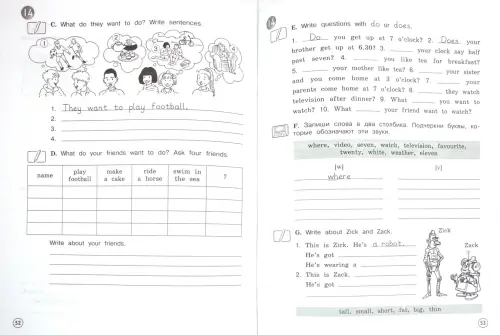 14
C. What do they want to do? Write sentences.
1. They want to play football.
2.
3.
4.
D. What do your friends want to do? Ask four friends.
name play football make a cake ride a horse swim in the sea ?
Write about your friends.
52
14
E. Write questions with do or does.
1. Do you get up at 7 o'clock? 2. Does your
brother get up at 6.30? 3. your clock say half
past seven? 4. you like tea for breakfast?
5. your mother like tea? 6. your sister
and you come home at 3 o'clock? 7. your
parents come home at 7 o'clock? 8. they watch
television after dinner? 9. What you want to
watch? 10. What your friend want to watch?
F. Запиши слова в два столбика. Подчеркни буквы, ко-
торые обозначают эти звуки.
where, video, seven, watch, television, favourite,
twenty, white, weather, eleven
[w] [v]
where
G. Write about Zick and Zack.
Zick
1. This is Zick. He's a robot.
Zack
He's got
He's wearing a
2. This is Zack.
He's got
tall, small, short, fat, big, thin
53